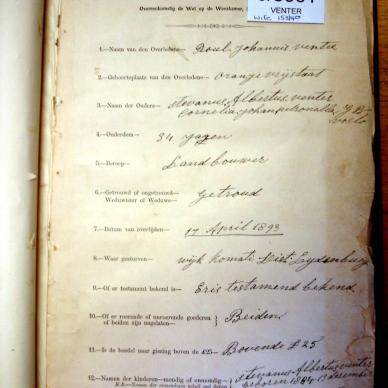 VENTER
Overeenkomstig de Wet op de Weeskamer,
1.—Naam van den Overledene— Roul Johannis venter
2.—Geboorteplaats van den Overledene— orange vrijstaat
3.—Namen der Ouders— stevanus Albertus venter
Cornelia Johan petronella
4.—Ouderdom— 34 Jaren
5.—Beroep— Landbouwer
6.—Getrouwd of ongetrouwd— Getroud
Weduwnaar of Weduwe—
7.—Datum van overlijden— 17 April 1893
8.—Waar gestorven— wijk Komati Dist. Lydenburg
9.—Of er testament bekend is— Eris testamend bekend
10.—Of er roerende of onroerende goederen Beiden
of beiden zijn nagelaten—
11.—Is de boedel naar gissing boven de £25— Bovende £25
12.—Namen der kinderen—mondig of onmondig— stevanus Albertus venter
Geboren 1884 13 december